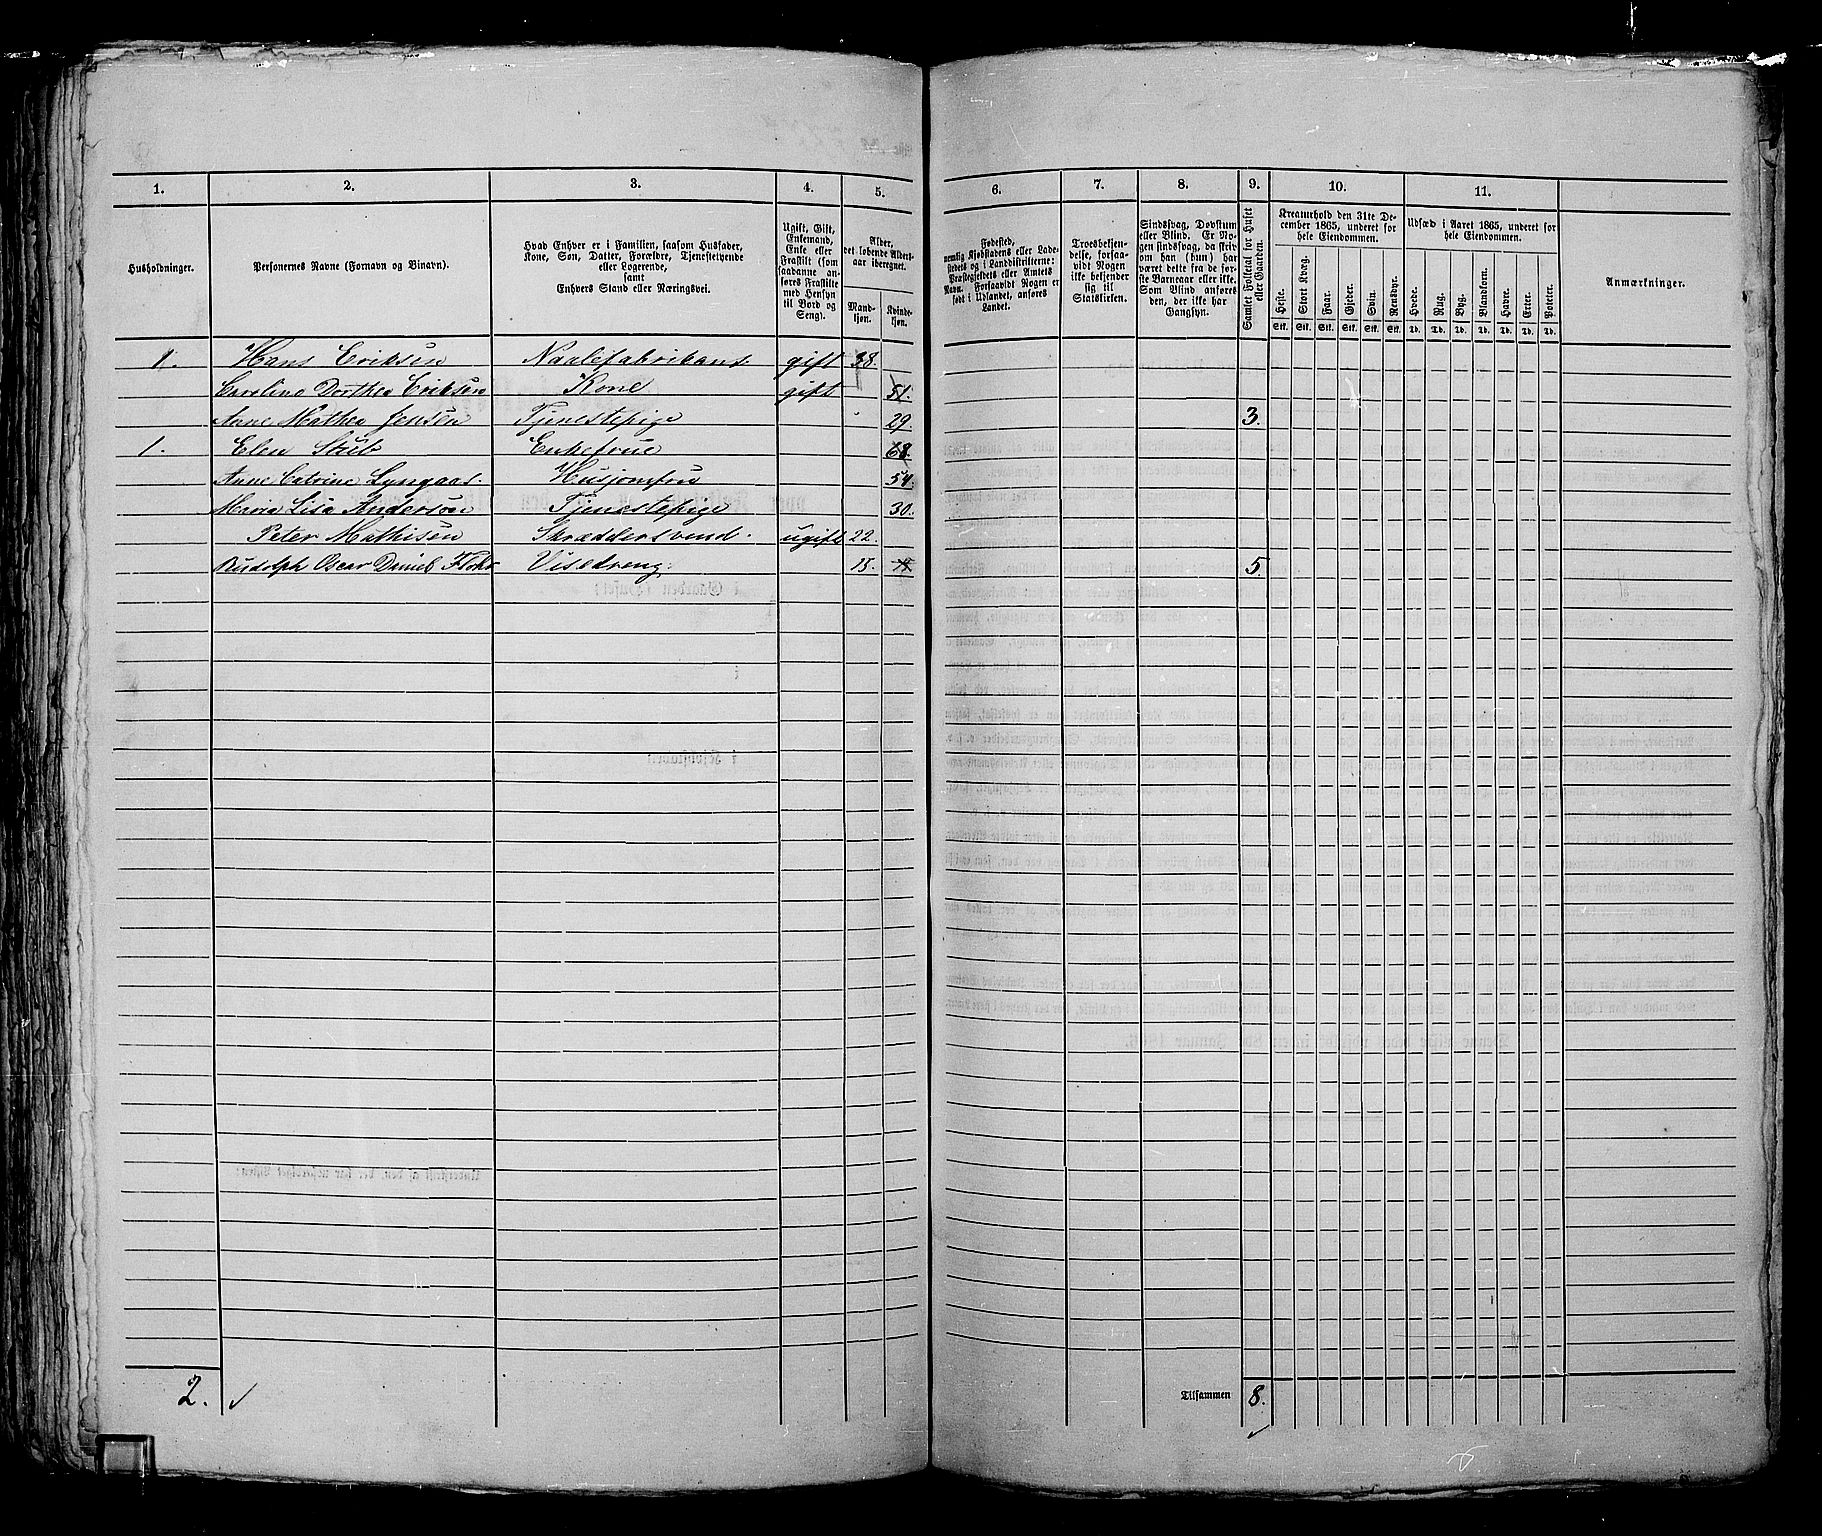 1. 2. 3. 4. 5. 6. 7. 8. 9. 10. 11.
Husholdninger.
Personernes Navne (Fornavn og Binavn).
Hvad Enhver er i Familien, saasom Husfader,
Kone, Søn, Datter, Forældre, Tjenestetyende
eller Logerende,
samt
Enhvers Stand eller Næringsvei.
Ugift, Gift,
Enkemand,
Enke eller
Fraskilt (som
saadanne an-
føres Fraskilte
med Hensyn
til Bord og
Seng).
Alder,
det løbende Alders-
aar iberegnet.
Mand-
kjøn.
Kvinde-
kjøn.
Fødested,
nemlig Kjøbstadens eller Lade-
stedets og i Landdistrikterne:
Præstegjeldets eller Amtets
Navn. Forsaavidt Nogen er
født i Udlandet, anføres
Landet.
Troesbekjen-
delse, forsaa-
vidt Nogen
ikke bekjender
sig til
Statskirken.
Sindssvag, Døvstum
eller Blind. Er No-
gen sindssvag, da skriv
om han (hun) har
været dette fra de før-
ste Barneaar eller ikke.
Som Blind anføres
den, der ikke har
Gangsyn.
Samlet Folketal for Huset
eller Gaarden.
Kreaturhold den 31te De-
cember 1865, underet for
hele Eiendommen.
Heste. Stort Kvæg. Faar. Gjeder. Svin. Rensdyr.
Stk. Stk. Stk. Stk. Stk. Stk.
Udsæd i Aaret 1865, underet for
hele Eiendommen.
Hvede. Rug. Byg. Blandkorn. Havre. Erter. Poteter.
Td. Td. Td. Td. Td. Td. Td.
Anmærkninger.
1. Hans Eriksen Naalefabrikant gift 38.
Caroline Dorthea Eriksen Kone gift 51.
Anne Mathea Jensen Tjenestepige 29. 3.
1. Elen Stub Enkefrue 68.
Anne Catrine Lyngaas. Husjomfru 54.
Maria Lisa Anderson Tjenestepige 30.
Peter Mathisen Skræddersvend. ugift 22.
Rudolph Oscar Daniel Visedreng. 15. 5.
2.
Tilsammen 8.